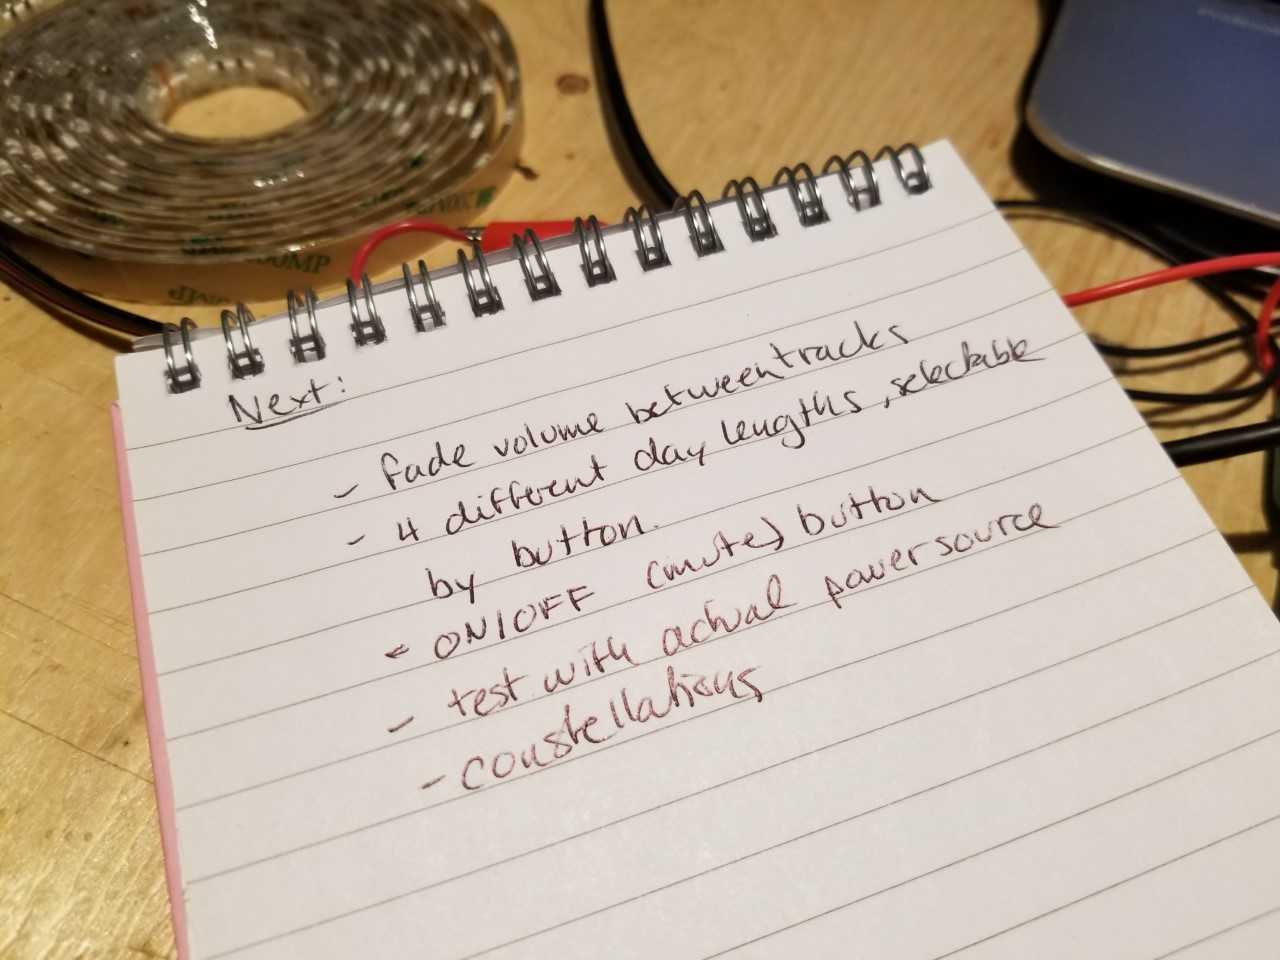 Next:
- fade volume between tracks
- 4 different day lengths, selectable
by button.
- ON/OFF (mute) button
- test with actual power source
- constellations